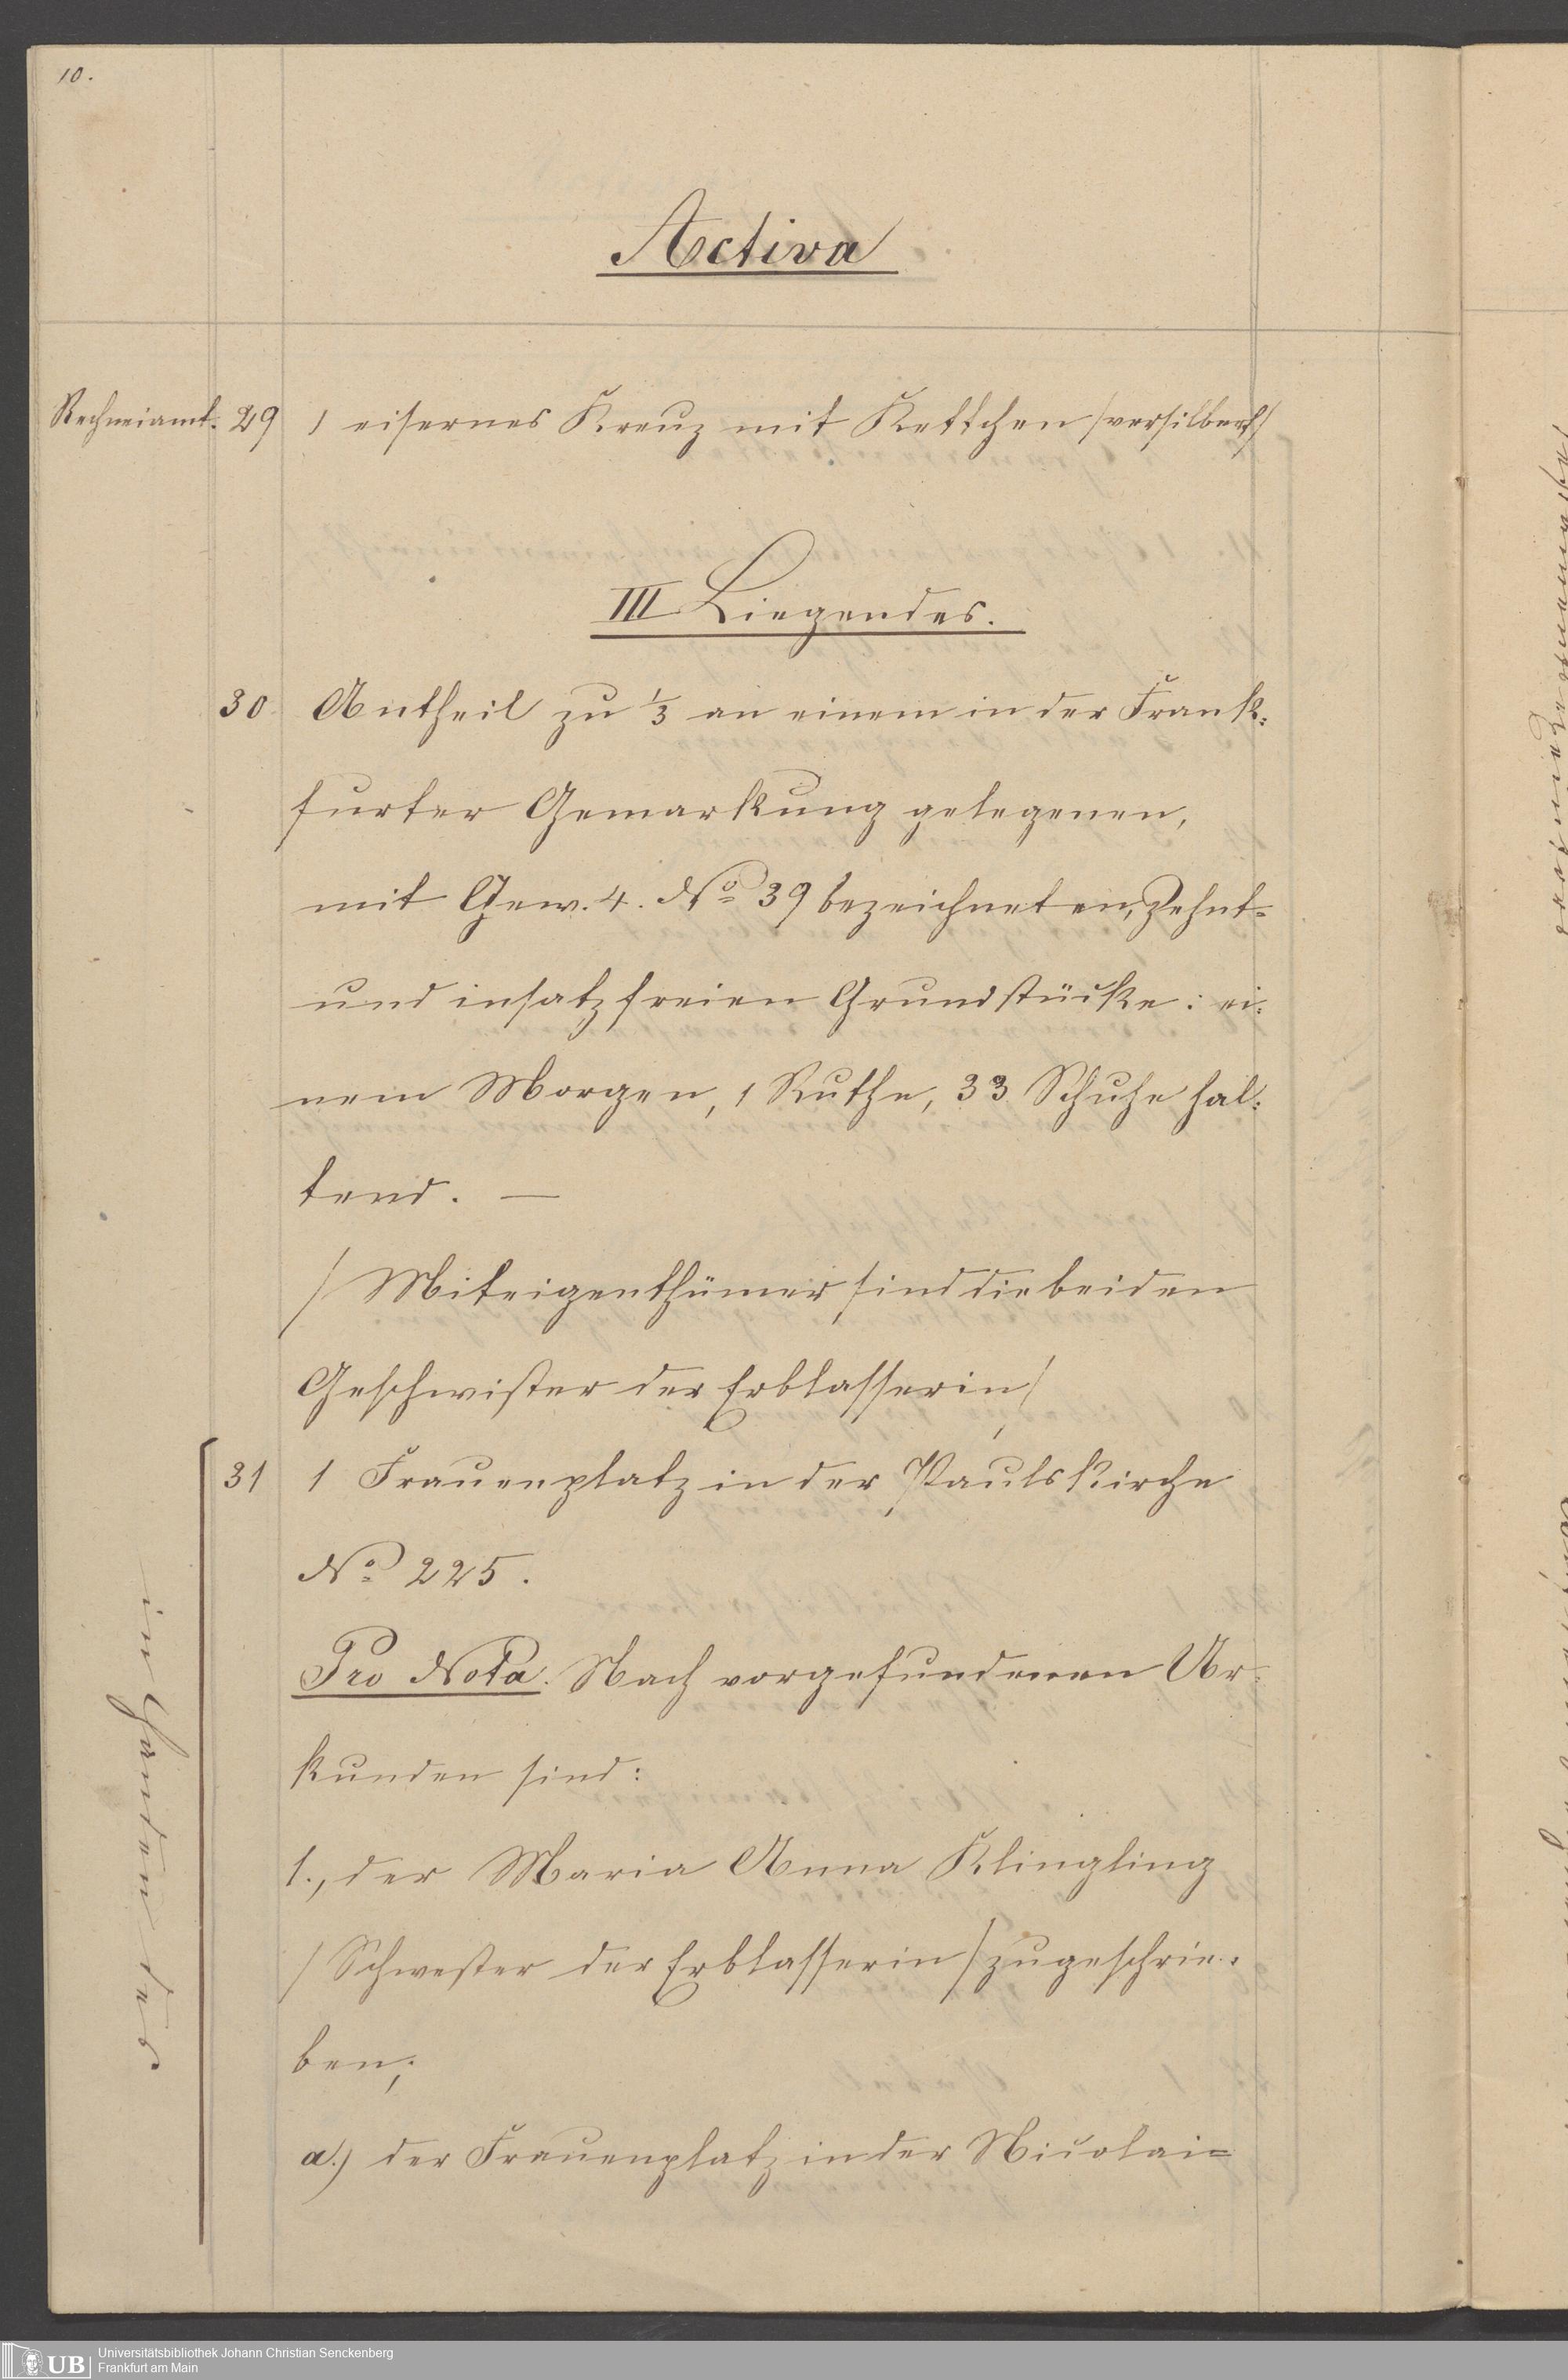 10.
Activa
Rechneiamt. 29 1 eisernes Kreuz mit Kettchen /versilbert/
III Liegendes.
30 Antheil zu 1/3 an einem in der Frank-
furter Gemarkung gelegenen,
mit Gew. 4. No 39 bezeichneten, zehnt-
und insatzfreien Grundstücke: ei-
nem Morgen, 1 Ruthe, 33 Schuhe hal-
tend. —
/Miteigenthümer sind die beiden
Geschwister der Erblasserin/
31 1 Frauenplatz in der Paulskirche
No 225.
Pro Nota. Nach vorgefundenen Ur-
kunden sind:
1., der Maria Anna Klingling
/Schwester der Erblasserin/ zugeschrie-
ben;
a.) der Frauenplatz in der Nicolai-
in Handen des
UB Universitätsbibliothek Johann Christian Senckenberg
Frankfurt am Main